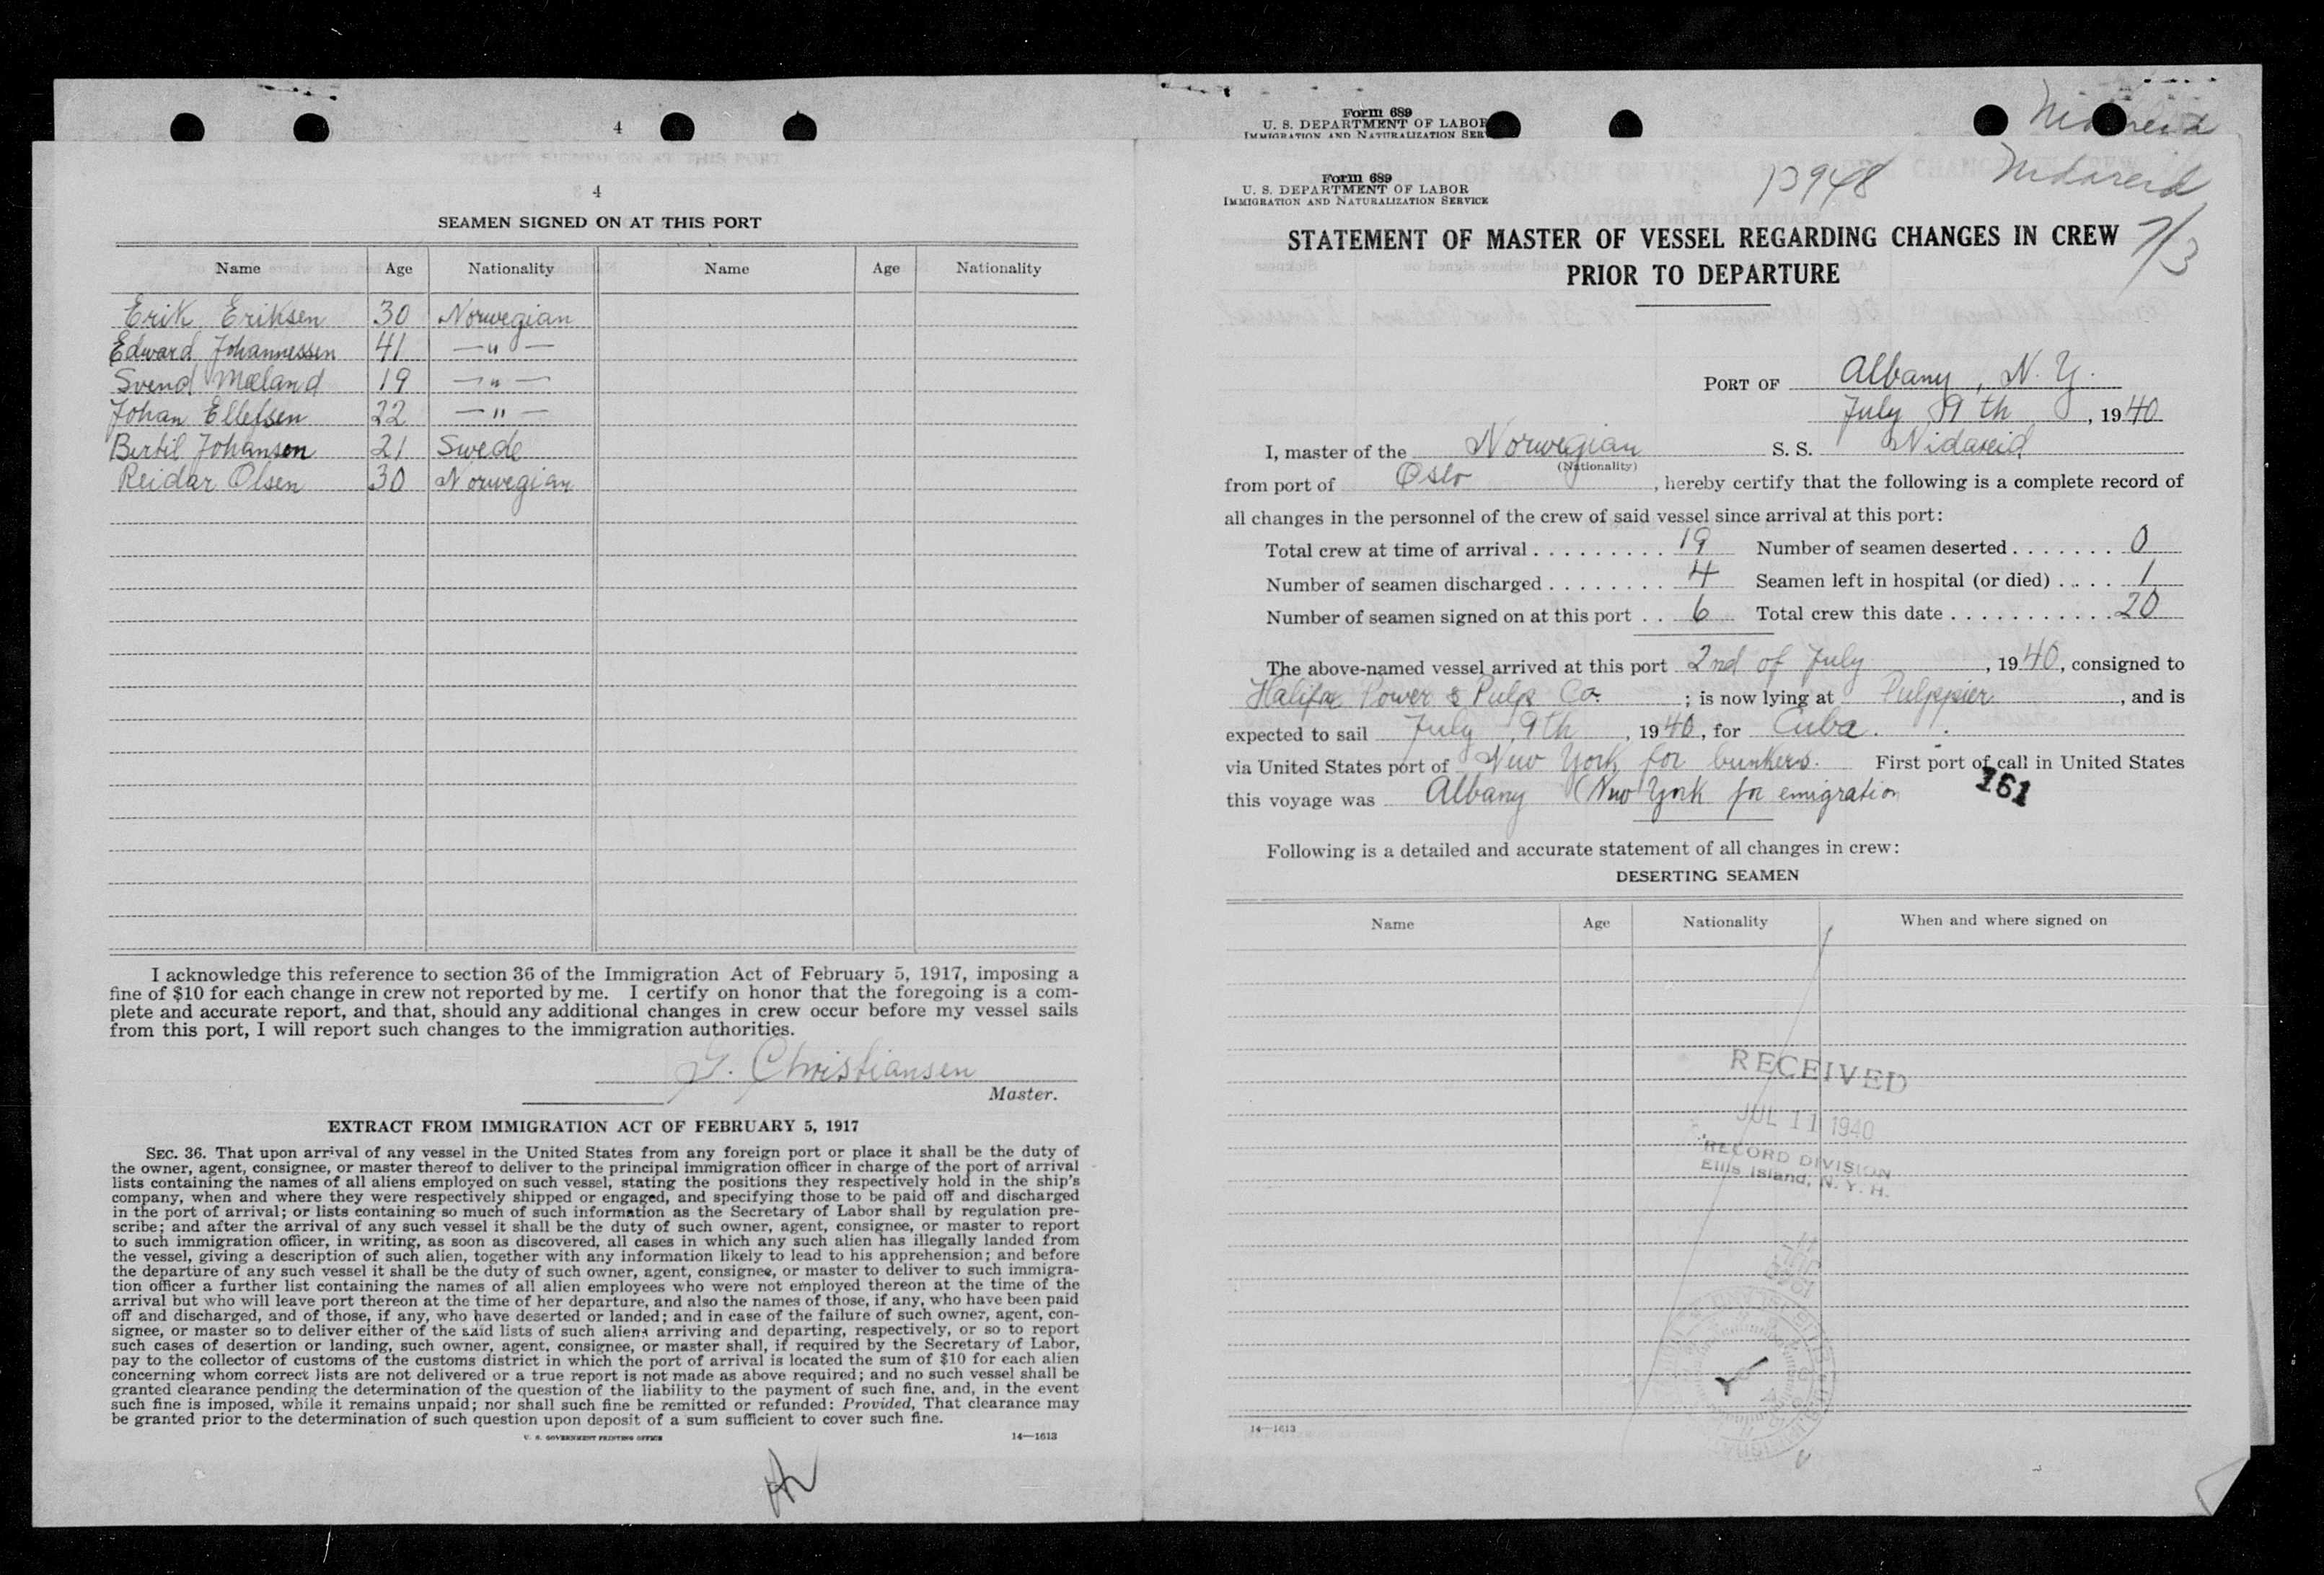 4
4
SEAMEN SIGNED ON AT THIS PORT
Name Age Nationality Name Age Nationality
Erik Eriksen 30 Norwegian
Edward Johannessen 41 — " —
Svend Mæland 19 — " —
Johan Ellefsen 22 — " —
Bertil Johanson 21 Swede
Reidar Olsen 30 Norwegian
I acknowledge this reference to section 36 of the Immigration Act of February 5, 1917, imposing a
fine of $10 for each change in crew not reported by me. I certify on honor that the foregoing is a com-
plete and accurate report, and that, should any additional changes in crew occur before my vessel sails
from this port, I will report such changes to the immigration authorities.
Christiansen
Master.
EXTRACT FROM IMMIGRATION ACT OF FEBRUARY 5, 1917
SEC. 36. That upon arrival of any vessel in the United States from any foreign port or place it shall be the duty of
the owner, agent, consignee, or master thereof to deliver to the principal immigration officer in charge of the port of arrival
lists containing the names of all aliens employed on such vessel, stating the positions they respectively hold in the ship's
company, when and where they were respectively shipped or engaged, and specifying those to be paid off and discharged
in the port of arrival; or lists containing so much of such information as the Secretary of Labor shall by regulation pre-
scribe; and after the arrival of any such vessel it shall be the duty of such owner, agent, consignee, or master to report
to such immigration officer, in writing, as soon as discovered, all cases in which any such alien has illegally landed from
the vessel, giving a description of such alien, together with any information likely to lead to his apprehension; and before
the departure of any such vessel it shall be the duty of such owner, agent, consignee, or master to deliver to such immigra-
tion officer a further list containing the names of all alien employees who were not employed thereon at the time of the
arrival but who will leave port thereon at the time of her departure, and also the names of those, if any, who have been paid
off and discharged, and of those, if any, who have deserted or landed; and in case of the failure of such owner, agent, con-
signee, or master so to deliver either of the said lists of such aliens arriving and departing, respectively, or so to report
such cases of desertion or landing, such owner, agent, consignee, or master shall, if required by the Secretary of Labor,
pay to the collector of customs of the customs district in which the port of arrival is located the sum of $10 for each alien
concerning whom correct lists are not delivered or a true report is not made as above required; and no such vessel shall be
granted clearance pending the determination of the question of the liability to the payment of such fine, and, in the event
such fine is imposed, while it remains unpaid; nor shall such fine be remitted or refunded: Provided, That clearance may
be granted prior to the determination of such question upon deposit of a sum sufficient to cover such fine.
U. S. GOVERNMENT PRINTING OFFICE 14—1613
Form 689
U. S. DEPARTMENT OF LABOR
IMMIGRATION AND NATURALIZATION SER
Nidareid
Form 689
U. S. DEPARTMENT OF LABOR
IMMIGRATION AND NATURALIZATION SERVICE
13948
Nidareid
7/3
STATEMENT OF MASTER OF VESSEL REGARDING CHANGES IN CREW
PRIOR TO DEPARTURE
PORT OF Albany, N. Y.
July 9th, 1940
I, master of the Norwegian S. S. Nidareid
(Nationality)
from port of Oslo, hereby certify that the following is a complete record of
all changes in the personnel of the crew of said vessel since arrival at this port:
Total crew at time of arrival . . . . . . . . . 19 Number of seamen deserted . . . . . . . 0
Number of seamen discharged . . . . . . . . 4 Seamen left in hospital (or died) . . . . 1
Number of seamen signed on at this port . . 6 Total crew this date . . . . . . . . . . . 20
The above-named vessel arrived at this port 2nd of July, 1940, consigned to
Halifax Power & Pulp Co. ; is now lying at Pulppier, and is
expected to sail July 9th, 1940, for Cuba.
via United States port of New York for bunkers. First port of call in United States
this voyage was Albany (New York for emigration
161
Following is a detailed and accurate statement of all changes in crew:
DESERTING SEAMEN
Name Age Nationality When and where signed on
RECEIVED
JUL 11 1940
RECORD DIVISION
Ellis Island, N. Y. H.
14—1613